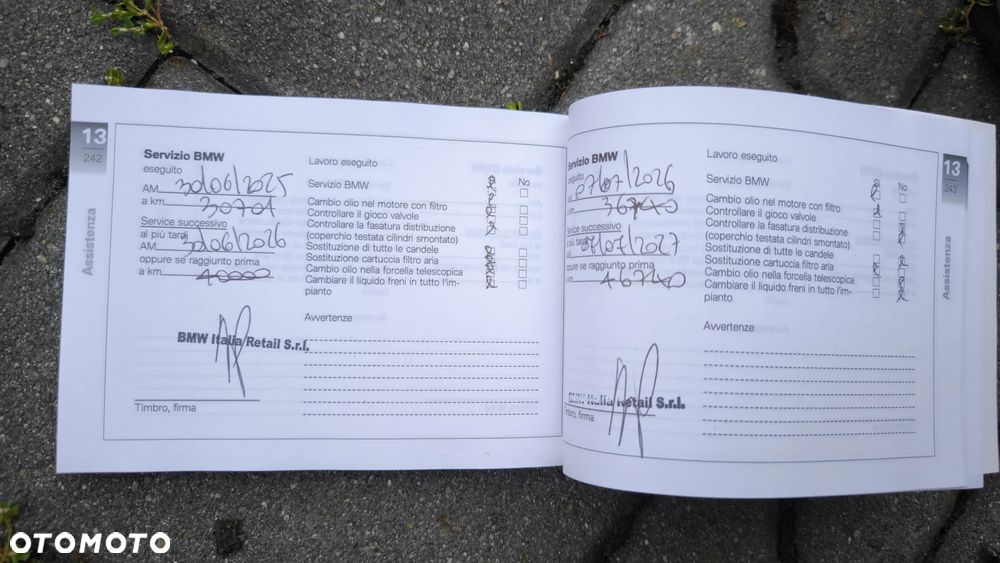 13
242
Assistenza
Servizio BMW
eseguito
AM 30/06/2025
a km 30701
Service successivo
al più tardi
AM 30/06/2026
oppure se raggiunto prima
a km 40000
BMW Italia Retail S.r.l.
Timbro, firma
Lavoro eseguito
Sì No
Servizio BMW
Cambio olio nel motore con filtro
Controllare il gioco valvole
Controllare la fasatura distribuzione
(coperchio testata cilindri smontato)
Sostituzione di tutte le candele
Sostituzione cartuccia filtro aria
Cambio olio nella forcella telescopica
Cambiare il liquido freni in tutto l'im-
pianto
Avvertenze
Servizio BMW
eseguito
07/07/2026
km
Service successivo
a più tardi
07/07/2027
oppure se raggiunto prima
km 46740
BMW Italia Retail S.r.l.
Timbro, firma
Lavoro eseguito
Sì No
Servizio BMW
Cambio olio nel motore con filtro
Controllare il gioco valvole
Controllare la fasatura distribuzione
(coperchio testata cilindri smontato)
Sostituzione di tutte le candele
Sostituzione cartuccia filtro aria
Cambio olio nella forcella telescopica
Cambiare il liquido freni in tutto l'im-
pianto
Avvertenze
13
243
Assistenza
OTOMOTO